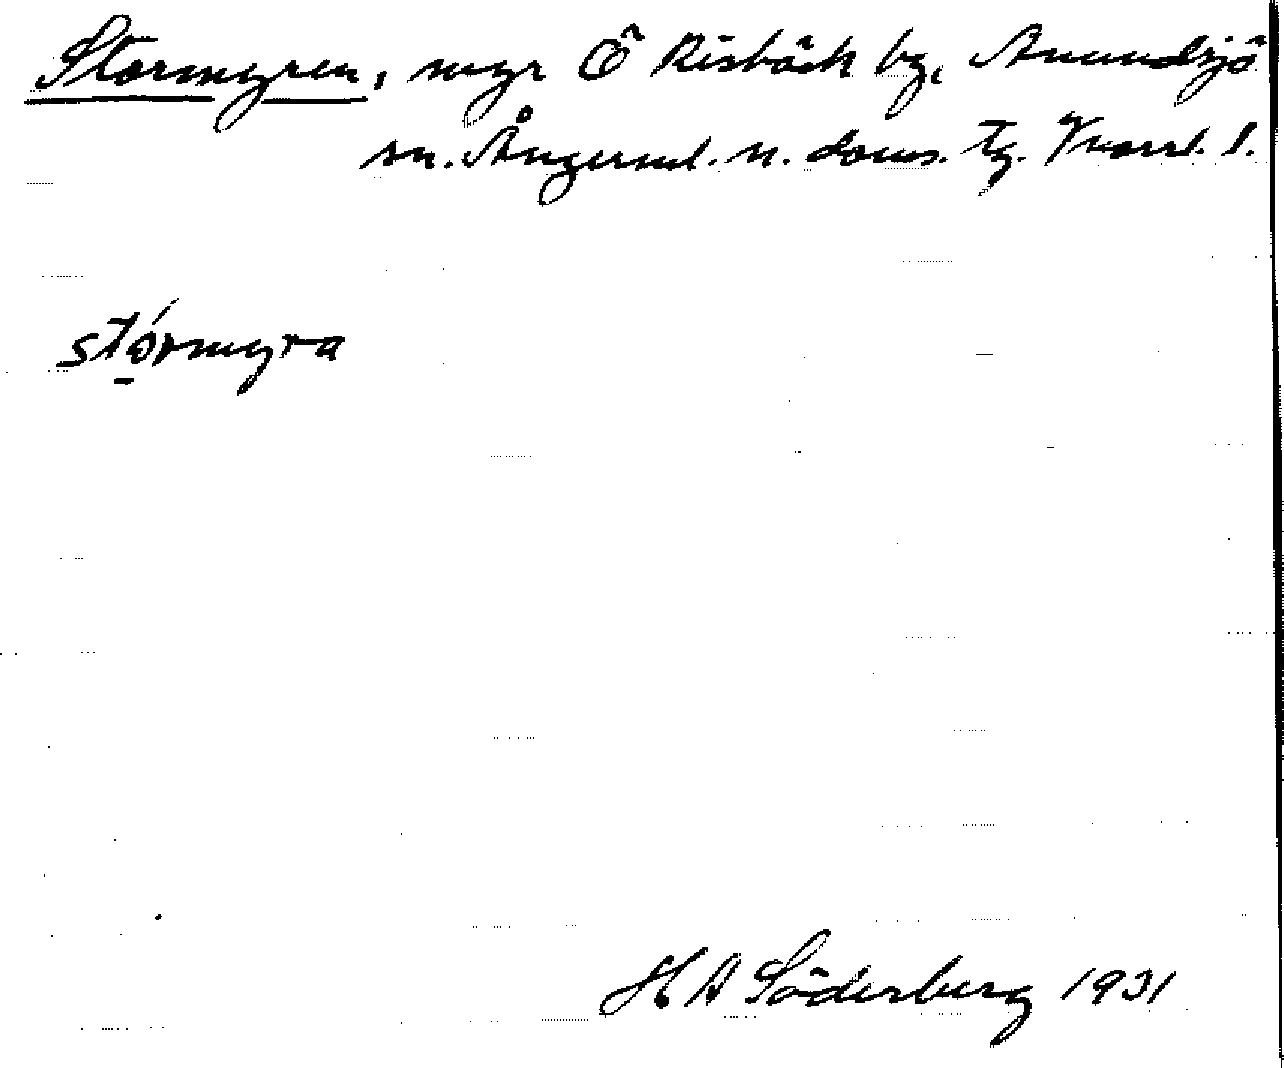 Stormyren, myr Ö Risbäck by, Anundsjö
sn. Ångerml. n. doms. tg. Vnorrl. l.
stórmyra
H A Söderberg 1931